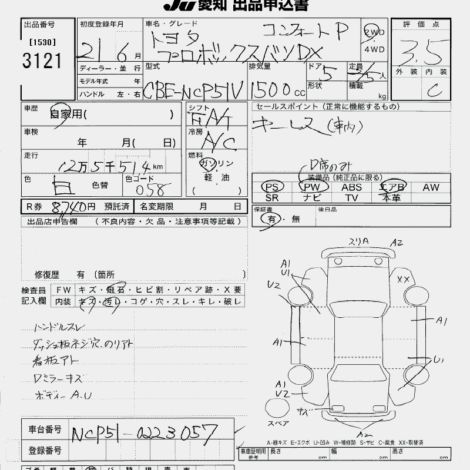 JU 愛知 出品申込書
[1530]
3121
初度登録年月
21年6月
ディーラー・並行
モデル年式 年
ハンドル 左・右
車名・グレード
コンフォートP
トヨタ
プロボックスバンDX
2WD
4WD
型式
CBE-NCP51V
排気量
1500cc
ドア
5
形状
定員
積載
kg
評価点
3.5
外装 内装
C
車歴
自家用( )
シフト
FAT
車検
年 月( 日)
冷房
A/C
走行
12万5千514km
燃料
ガソリン
軽油
色
白
色替
色コード
058
セールスポイント(正常に機能するもの)
キーレス(車内)
D席のみ
装備品(純正品に限る)
PS PW ABS エアB AW
SR ナビ TV 本革
R券 8740円 預託済 名変期限 月 日
保証書
有・無
後日品
出品店申告欄 (不良内容・欠品・注意事項等記載)
修復歴 有(箇所)
検査員
記入欄
FW キズ・飛石・ヒビ割・リペア跡・X要
内装 キズ・汚レ・コゲ・穴・スレ・キレ・破レ
ハンドルスレ
ダッシュ板ネジ穴、のリアト
看板アト
Dミラーキズ
ボディーA.U
スリA A2
A1
U2
XX
A1
A1
A1
U1
A1
U2
A2
スペア
車台番号
NCP51-0223057
登録番号
A・線キズ E・エクボ U・凹み W・補修跡 S・サビ C・腐食 XX・取替済
車庫証明用
参考
長さ cm 幅 cm 高さ cm